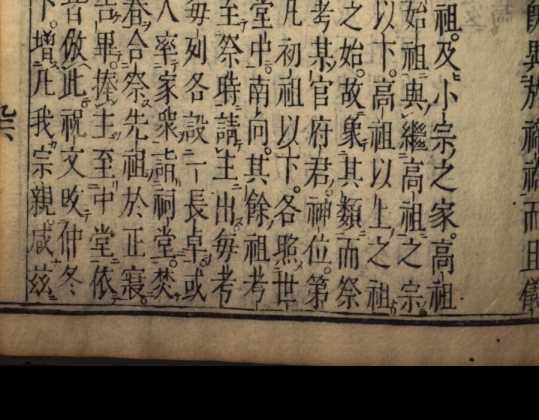 而且
祖。及小宗之家。高祖
始祖。與繼高祖之宗。
以下。高祖以上之祖
之始。故象其類而祭
考某官府君。神位。第
凡初祖以下。各照世
堂中。南向。其餘祖考
至祭時請主出。每考
每列各設一長卓。或
人率家衆詣祠堂。焚
春合祭先祖於正寢
告畢捧主至中堂。依
皆倣此。祝文改仲冬
下。增凡我宗親咸茲